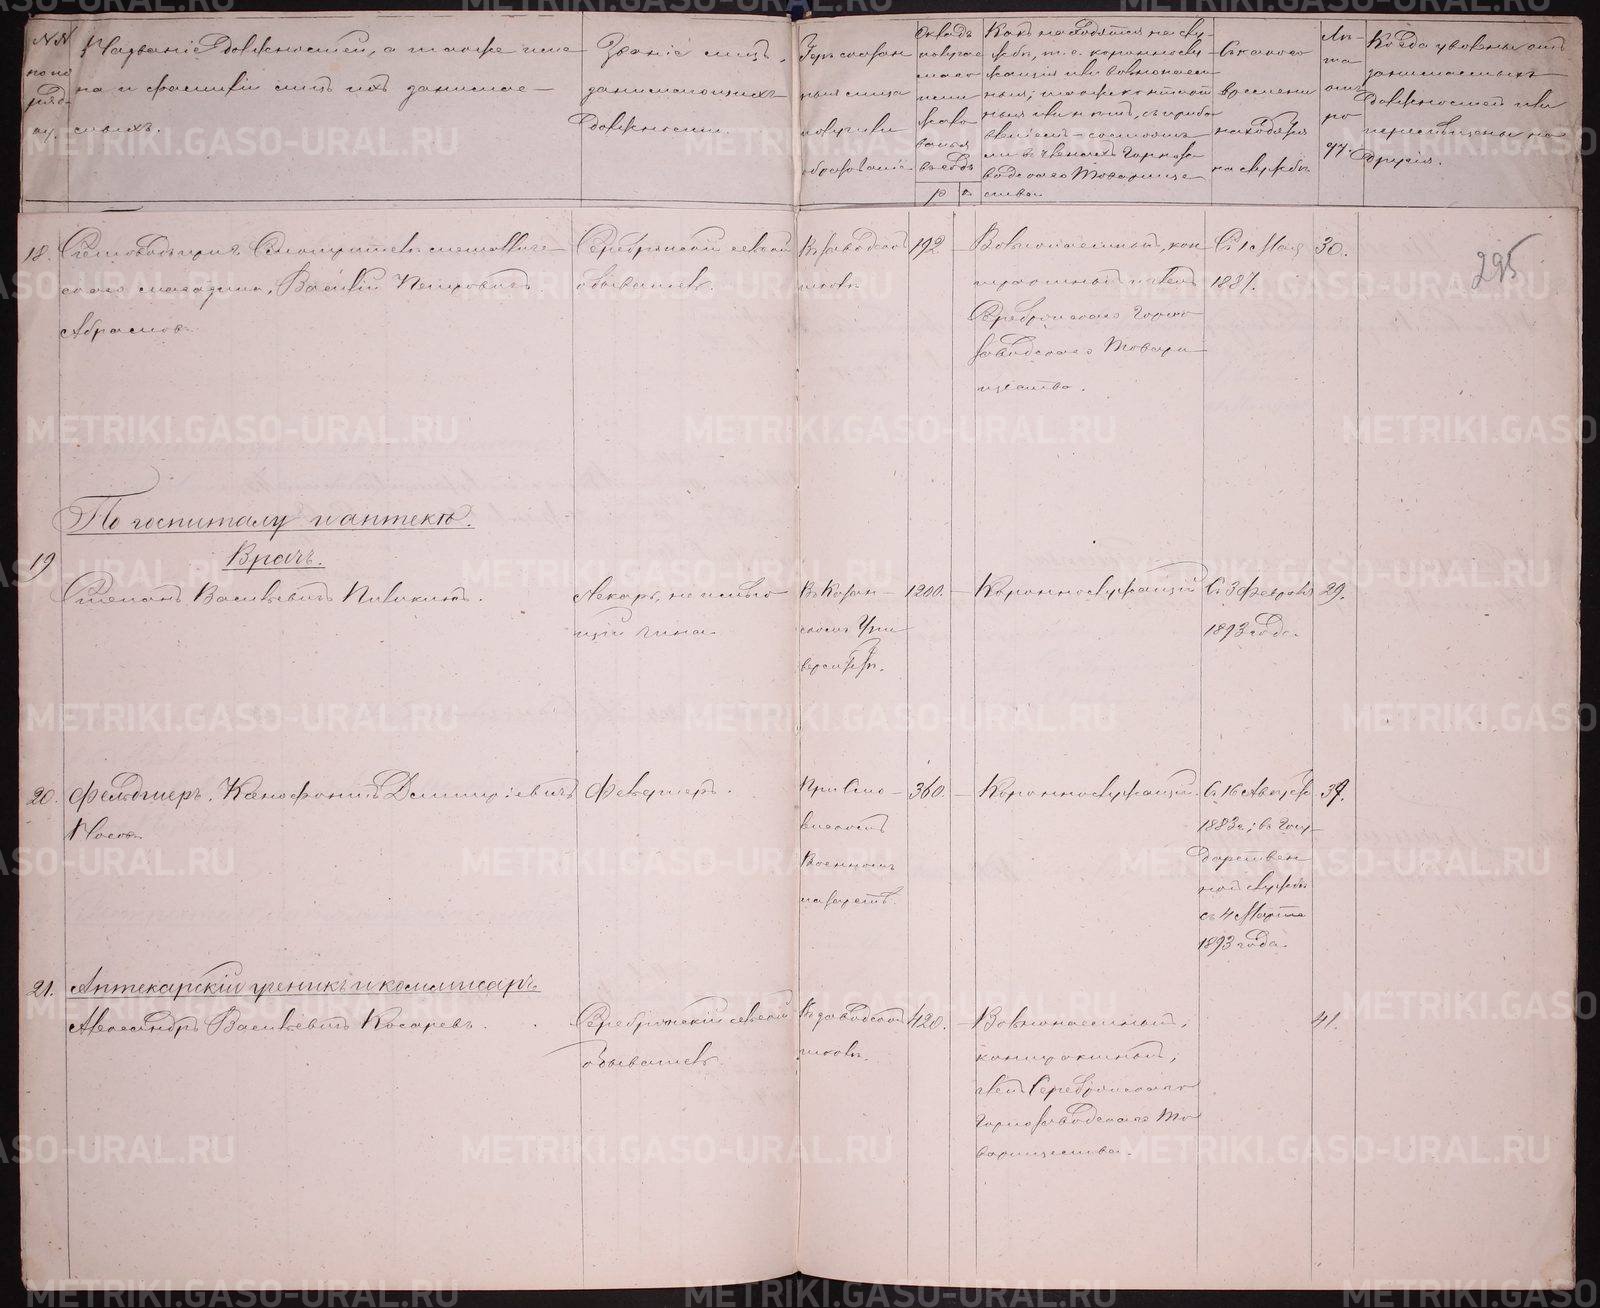 NN по по ряд- ку.
Названіе должностей, а также име-
на и фамиліи лицъ ихъ занимае-
мыхъ.
Званіе лицъ,
занимающихъ
должности.
Гдѣ
лица
получили
образованіе
Окладъ
получае
маго
ими
жало
ванья
въ годъ
р к
Какъ находятся на слу-
жбѣ, т. е. короннослу-
жащія или вольнонаем-
ныя;
ли въ членахъ Горноза-
водскаго Товарище-
ства.
Съ какого
времени
находятся
на службѣ
Лѣ-
та
отъ
ро
ду.
Когда уволены отъ
занимаемыхъ
должностей или
перемѣщены на
другія.
295
18.
Смотритель
магазина, Василій Петровичъ
Абрамовъ.
Серебрянскій сельскій
обыватель.
Въ заводской
школѣ
192
Вольнонаемный, кон-
трактный, членъ
Серебрянскаго Горно
заводскаго Товари
щества.
Съ 1 Мая
1887.
30.
По госпиталу и аптекѣ.
19
Врачъ.
Степанъ Васильевичъ
Лекарь, не имѣю
щій чина.
Въ Казан-
скомъ Уни
верситетѣ.
1200.
Короннослужащій
Съ 3 Февраля
1893 года.
29.
20.
Фельдшеръ, Ксенофонтъ Дмитріевичъ
Носовъ.
Фельдшеръ.
При
Военномъ
лазаретѣ.
360.
Короннослужащій.
Съ 16 Августа
1883 г; въ Госу-
дарствен
ной службѣ
съ 4 Марта
1893 года.
39.
21.
Аптекарскій ученикъ и коммисаръ
Александръ Васильевичъ Косаревъ.
Серебрянскій сельскій
обыватель.
Въ заводской
школѣ.
420.
Вольнонаемный,
контрактный,
членъ Серебрянскаго
Горнозаводскаго То
варищества.
41.
METRIKI.GASO-URAL.RU